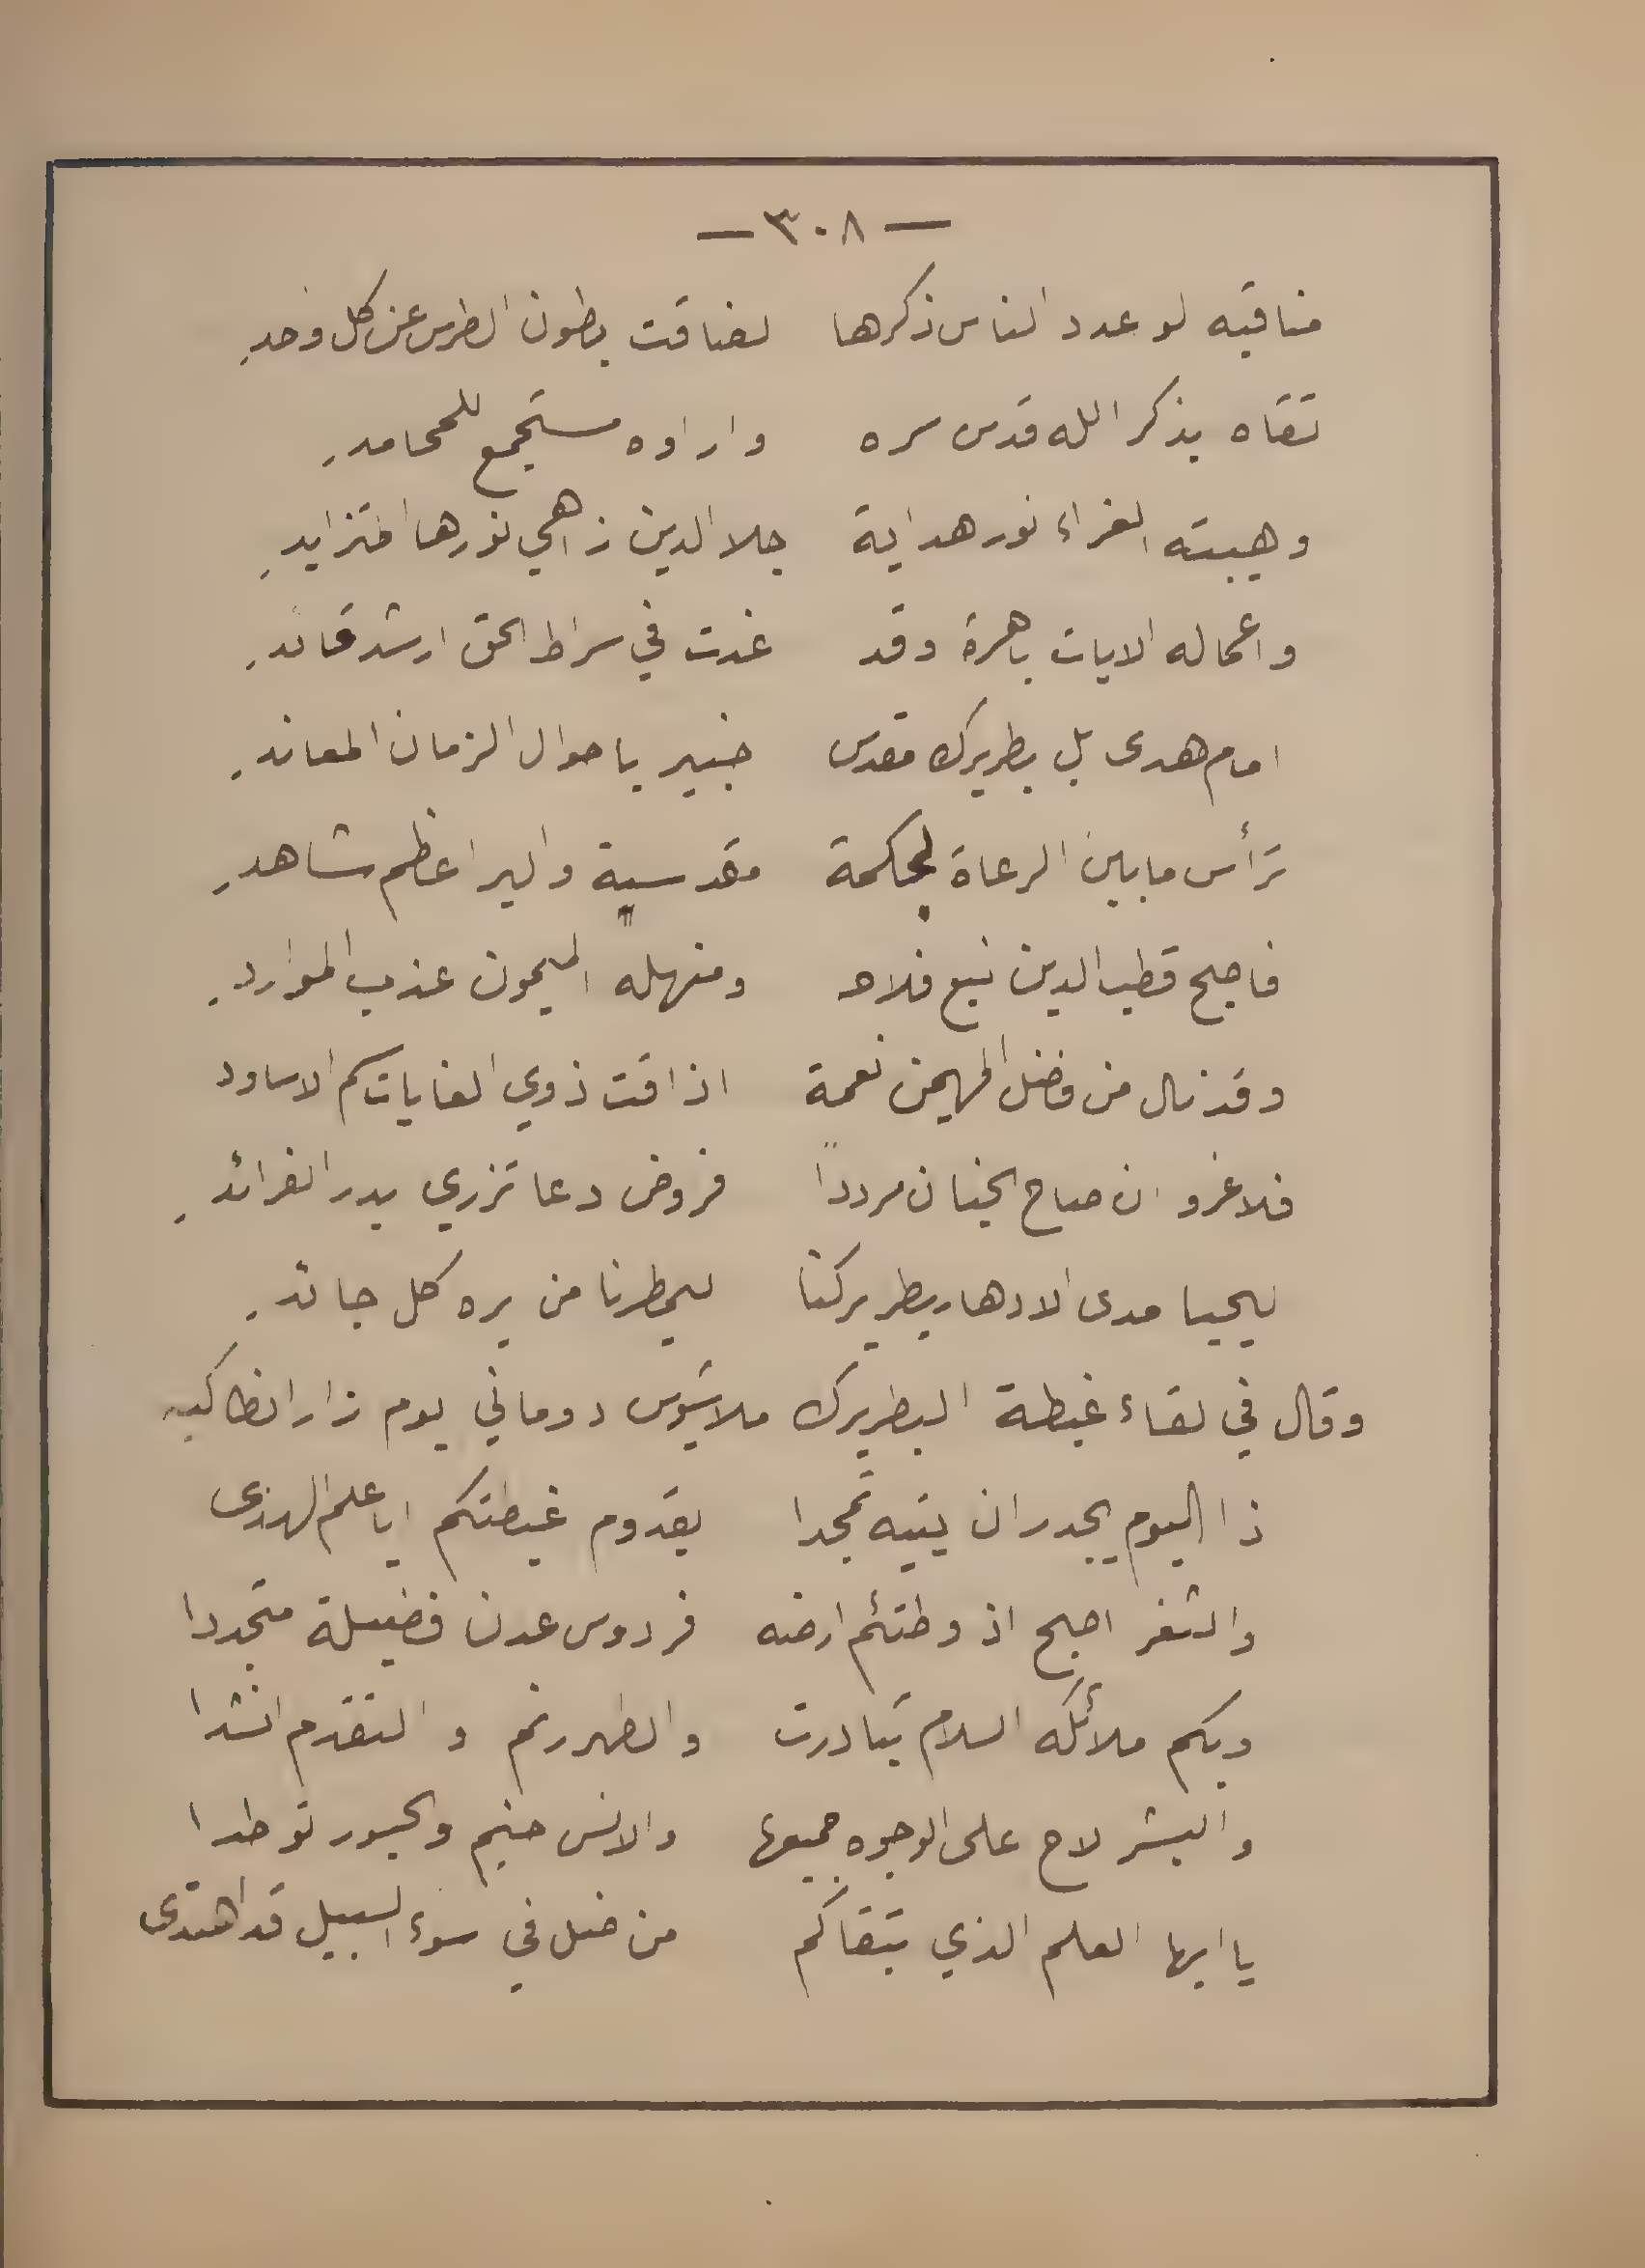 — ٣٠٨ —
مناقبه لو عدد الناس ذكرها لضاقت بطون الطرس عن كل واحدِ
تقاه بذكر الله قدس سره واراوه مستجمع للمحامدِ
وهيبته الغراء نور هداية جلا الدين زاهي نورها المتزايدِ
واعماله الايات باهرة وقد غدت في سراط الحق ارشد قائدِ
امام هدى بل بطريرك مقدس خبير باحوال الزمان المعاندِ
ترأس ما بين الرعاة بحكمة مقدسية والبر اعظم شاهدِ
فاصبح قطب الدين نبع فلاح ومنهله الميمون عذب المواردِ
وقد نال من فضل المهيمن نعمة اذاقت ذوي الغايات سم الاساود
فلا غرو ان صاح الجنان مرددًا فروض دعا تزري بدر الفرائدِ
ليحيا مدى الادهار بطريركنا ليمطرنا من بره كل جائدِ
وقال في لقاء غبطة البطريرك ملاتيوس دوماني يوم زار انطاكيه
ذا اليوم يجدر ان يتيه تمجدا بقدوم غبطتكم ايا علم الهدى
والثغر اصبح اذ وطئتم ارضه فردوس عدن فضيلة متجددا
وبكم ملائكه السلام تبادرت والطهر رنم والتقدم انشدا
والبشر لاح على الوجوه جميعها والانس خيم والحبور توطدا
يا ايها العلم الذي بتقاكم من ضل في سوء السبيل قد اهتدى